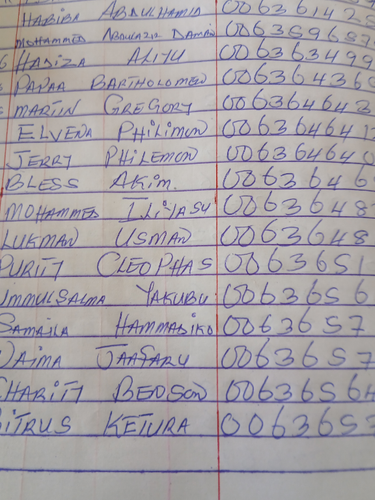 HABIBA ABDULHAMID 00636142
MOHAMMED ABDULAZIZ 00635965
HADIZA ALIYU 006363499
PAPAA BARTHOLOMEW 00636436
MARTIN GREGORY 00636464
ELVENA PHILIMON 006364641
JERRY PHILEMON 00636464
BLESS AKIM. 0063646
MOHAMMED ILIYASU 0063648
LUKMAN USMAN 0063648
PURITY CLEOPHAS 0063651
UMMULSALMA YAKUBU 0063656
SAMAILA HAMMADIKO 0063657
NAIMA JAAFARU 0063657
CHARITY BEDSON 0063656
BITRUS KETURA 0063653